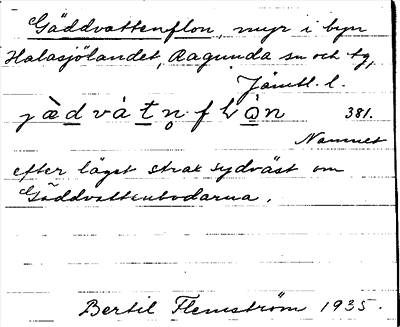 Gäddvattenflon, myr i byn
Halasjölandet, Ragunda sn och tg,
Jämtl. l.
381.
Namnet
efter läget strax sydväst om
Gäddvattenbodarna.
Bertil Flemström 1935.